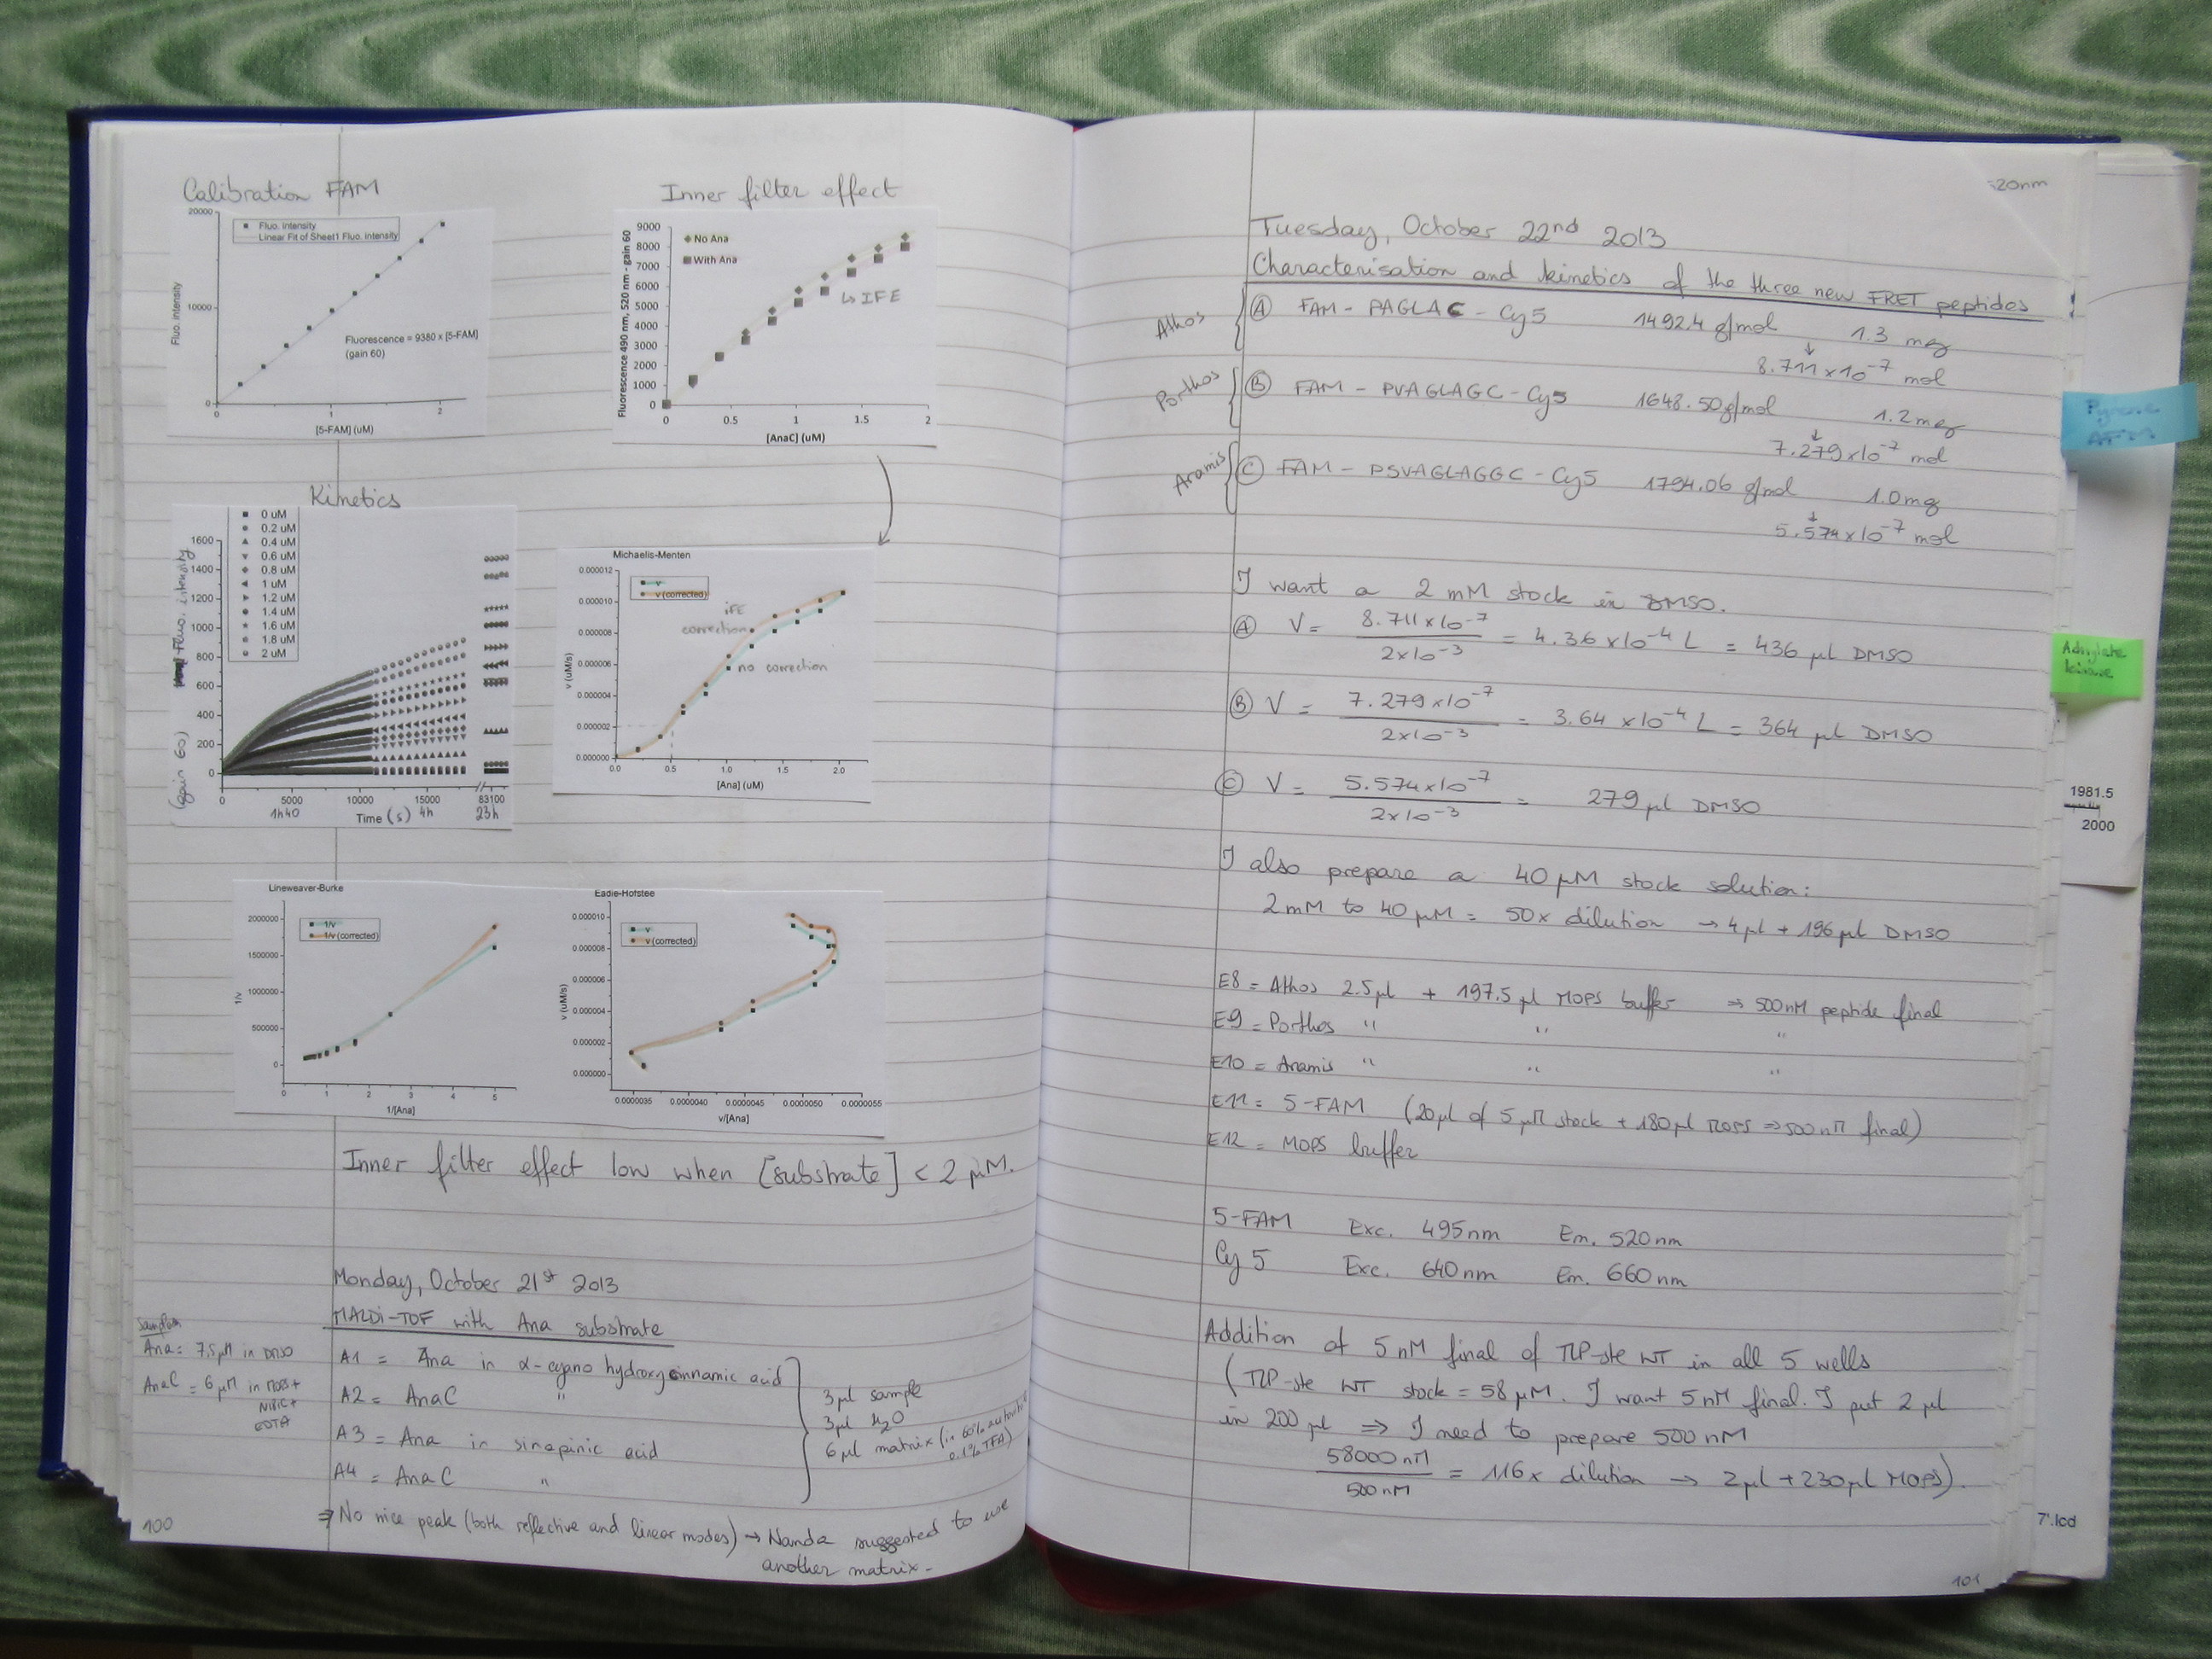 Calibration FAM
20000
Fluo. intensity
Linear Fit of Sheet1 Fluo. intensity
Fluo. intensity
10000
Fluorescence = 9380 x [5-FAM]
(gain 60)
0
0 1 2
[5-FAM] (uM)
Inner filter effect
Fluorescence 490 nm, 520 nm - gain 60
9000
8000
7000
6000
5000
4000
3000
2000
1000
0
No Ana
With Ana
↳ IFE
0 0.5 1 1.5 2
[AnaC] (uM)
Kinetics
0 uM
0.2 uM
0.4 uM
0.6 uM
0.8 uM
1 uM
1.2 uM
1.4 uM
1.6 uM
1.8 uM
2 uM
Fluo. intensity
(gain 60)
1600
1400
1200
1000
800
600
400
200
0
0 5000 10000 15000 83100
1h40 Time (s) 4h 23h
Michaelis-Menten
v
v (corrected)
v (uM/s)
0.000012
0.000010
0.000008
0.000006
0.000004
0.000002
0.000000
IFE
correction
no correction
0.0 0.5 1.0 1.5 2.0
[Ana] (uM)
Lineweaver-Burke
1/v
1/v (corrected)
1/v
2000000
1500000
1000000
500000
0
0 1 2 3 4 5
1/[Ana]
Eadie-Hofstee
v
v (corrected)
v (uM/s)
0.000010
0.000008
0.000006
0.000004
0.000002
0.000000
0.0000035 0.0000040 0.0000045 0.0000050 0.0000055
v/[Ana]
Inner filter effect low when [substrate] < 2 µM.
Monday, October 21st 2013
MALDi-TOF with Ana substrate
Samples
Ana = 7.5 µM in DMSO
AnaC = 6 µM in MOPS +
EDTA
A1 = Ana in α-cyano hydroxycinnamic acid
A2 = AnaC "
A3 = Ana in sinapinic acid
A4 = AnaC "
3 µl sample
3 µl H2O
6 µl matrix (in 60% acetonitrile
0.1% TFA)
⇒ No nice peak (both reflective and linear modes) → Nanda suggested to use
another matrix.
100
20nm
Tuesday, October 22nd 2013
Characterisation and kinetics of the three new FRET peptides
Athos Ⓐ FAM - PAGLAC - Cy5 1492.4 g/mol 1.3 mg
↓
8.711 x 10-7 mol
Porthos Ⓑ FAM - PVAGLAGC - Cy5 1648.50 g/mol 1.2 mg
↓
7.279 x 10-7 mol
Aramis Ⓒ FAM - PSVAGLAGGC - Cy5 1794.06 g/mol 1.0 mg
↓
5.574 x 10-7 mol
I want a 2 mM stock in DMSO.
Ⓐ V = 8.711 x 10-7 / 2 x 10-3 = 4.36 x 10-4 L = 436 µl DMSO
Ⓑ V = 7.279 x 10-7 / 2 x 10-3 = 3.64 x 10-4 L = 364 µl DMSO
Ⓒ V = 5.574 x 10-7 / 2 x 10-3 = 279 µl DMSO
I also prepare a 40 µM stock solution:
2 mM to 40 µM = 50x dilution → 4 µl + 196 µl DMSO
E8 = Athos 2.5 µl + 197.5 µl MOPS buffer ⇒ 500 nM peptide final
E9 = Porthos " " "
E10 = Aramis " " "
E11 = 5-FAM (20 µl of 5 µM stock + 180 µl MOPS ⇒ 500 nM final)
E12 = MOPS buffer
5-FAM Exc. 495nm Em. 520nm
Cy 5 Exc. 640nm Em. 660nm
Addition of 5 nM final of TLP-ste WT in all 5 wells
(TLP-ste WT stock = 58 µM. I want 5 nM final. I put 2 µl
in 200 µl ⇒ I need to prepare 500 nM
58000 nM / 500 nM = 116 x dilution → 2 µl + 230 µl MOPS).
101
AFM
Adenylate
kinase
1981.5
2000
7'.lcd